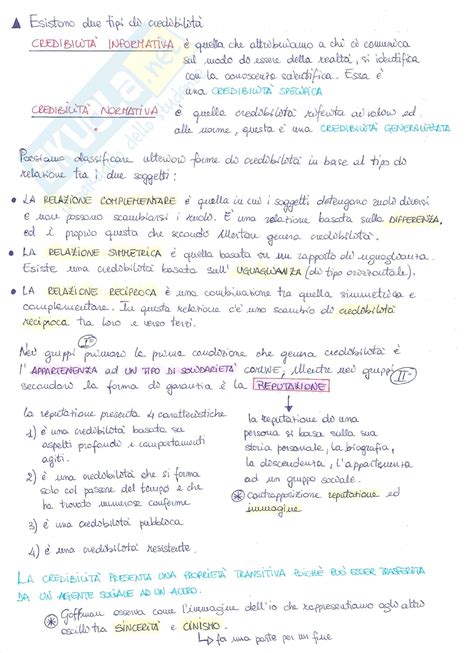 ▲ Esistono due tipi di credibilità
CREDIBILITÀ INFORMATIVA è quella che attribuiamo a chi ci comunica
sul modo di essere della realtà, si identifica
con la conoscenza scientifica. Essa è
una CREDIBILITÀ SPECIFICA
CREDIBILITÀ NORMATIVA è quella credibilità riferita ai valori ed
alle norme, questa è una CREDIBILITÀ GENERALIZZATA
Possiamo classificare ulteriori forme di credibilità in base al tipo di
relazione tra i due soggetti:
• LA RELAZIONE COMPLEMENTARE è quella in cui i soggetti detengono ruoli diversi
e non possono scambiarsi i ruoli. È una relazione basata sulla DIFFERENZA,
ed è proprio questa che secondo Merton genera credibilità.
• LA RELAZIONE SIMMETRICA è quella basata su un rapporto di uguaglianza.
Esiste una credibilità basata sull'UGUAGLIANZA (di tipo orizzontale).
• LA RELAZIONE RECIPROCA è una combinazione tra quella simmetrica e
complementare. In questa relazione c'è uno scambio di credibilità
reciproca tra loro e verso terzi.
I°
Nei gruppi primari la prima condizione che genera credibilità è
l'APPARTENENZA AD UN TIPO DI SOLIDARIETÀ COMUNE; Mentre nei gruppi
II°
secondari la forma di garanzia è la REPUTAZIONE
la reputazione presenta 4 caratteristiche
1) è una credibilità basata su
aspetti profondi e comportamenti
agiti.
2) è una credibilità che si forma
solo col passare del tempo e che
ha trovato numerose conferme
3) è una credibilità pubblica
4) è una credibilità resistente.
la reputazione di una
persona si basa sulla sua
storia personale, la biografia,
la discendenza, l'appartenenza
ad un gruppo sociale.
* contrapposizione reputazione ed
immagine
LA CREDIBILITÀ PRESENTA UNA PROPRIETÀ TRANSITIVA POICHÈ PUÒ ESSER TRASFERITA
DA UN AGENTE SOCIALE AD UN ALTRO.
* Goffman osserva come l'immagine dell'io che rappresentiamo agli altri
oscilli tra SINCERITÀ e CINISMO.
↳ fa una parte per un fine
SKUOLA.net